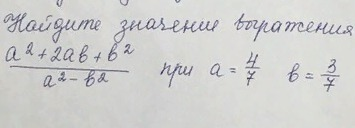 Найдите значение выражения
a² + 2ab + b² / a² - b² при a = 4/7 b = 3/7